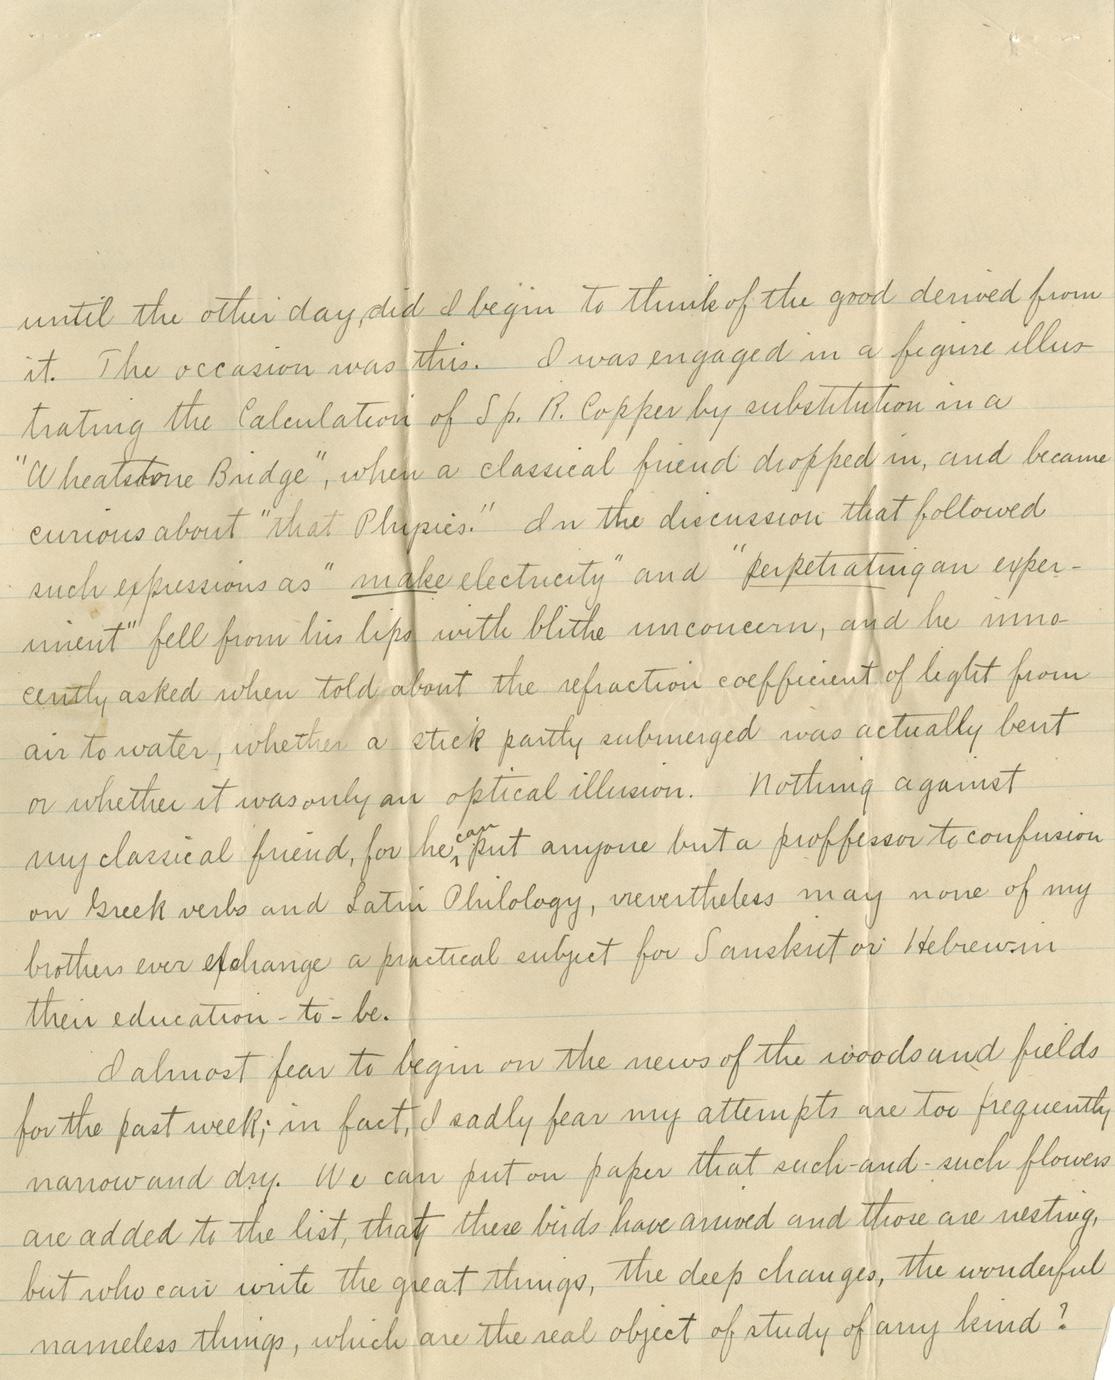 until the other day, did I begin to think of the good derived from
it. The occasion was this. I was engaged in a figure illus-
trating the Calculation of Sp. R. Copper by substitution in a
"Wheatstone Bridge", when a classical friend dropped in, and became
curious about "that Physics." In the discussion that followed
such expressions as "make electricity" and "perpetrating an exper-
iment" fell from his lips with blithe unconcern, and he inno-
cently asked when told about the refraction coefficient of light from
air to water, whether a stick partly submerged was actually bent
or whether it was only an optical illusion. Nothing against
my classical friend, for he can put anyone but a proffessor to confusion
on Greek verbs and Latin Philology, nevertheless may none of my
brothers ever exchange a practical subject for Sanskrit or Hebrew in
their education-to-be.
I almost fear to begin on the news of the woods and fields
for the past week; in fact, I sadly fear my attempts are too frequently
narrow and dry. We can put on paper that such-and-such flowers
are added to the list, that these birds have arrived and those are nesting,
but who can write the great things, the deep changes, the wonderful
nameless things, which are the real object of study of any kind?